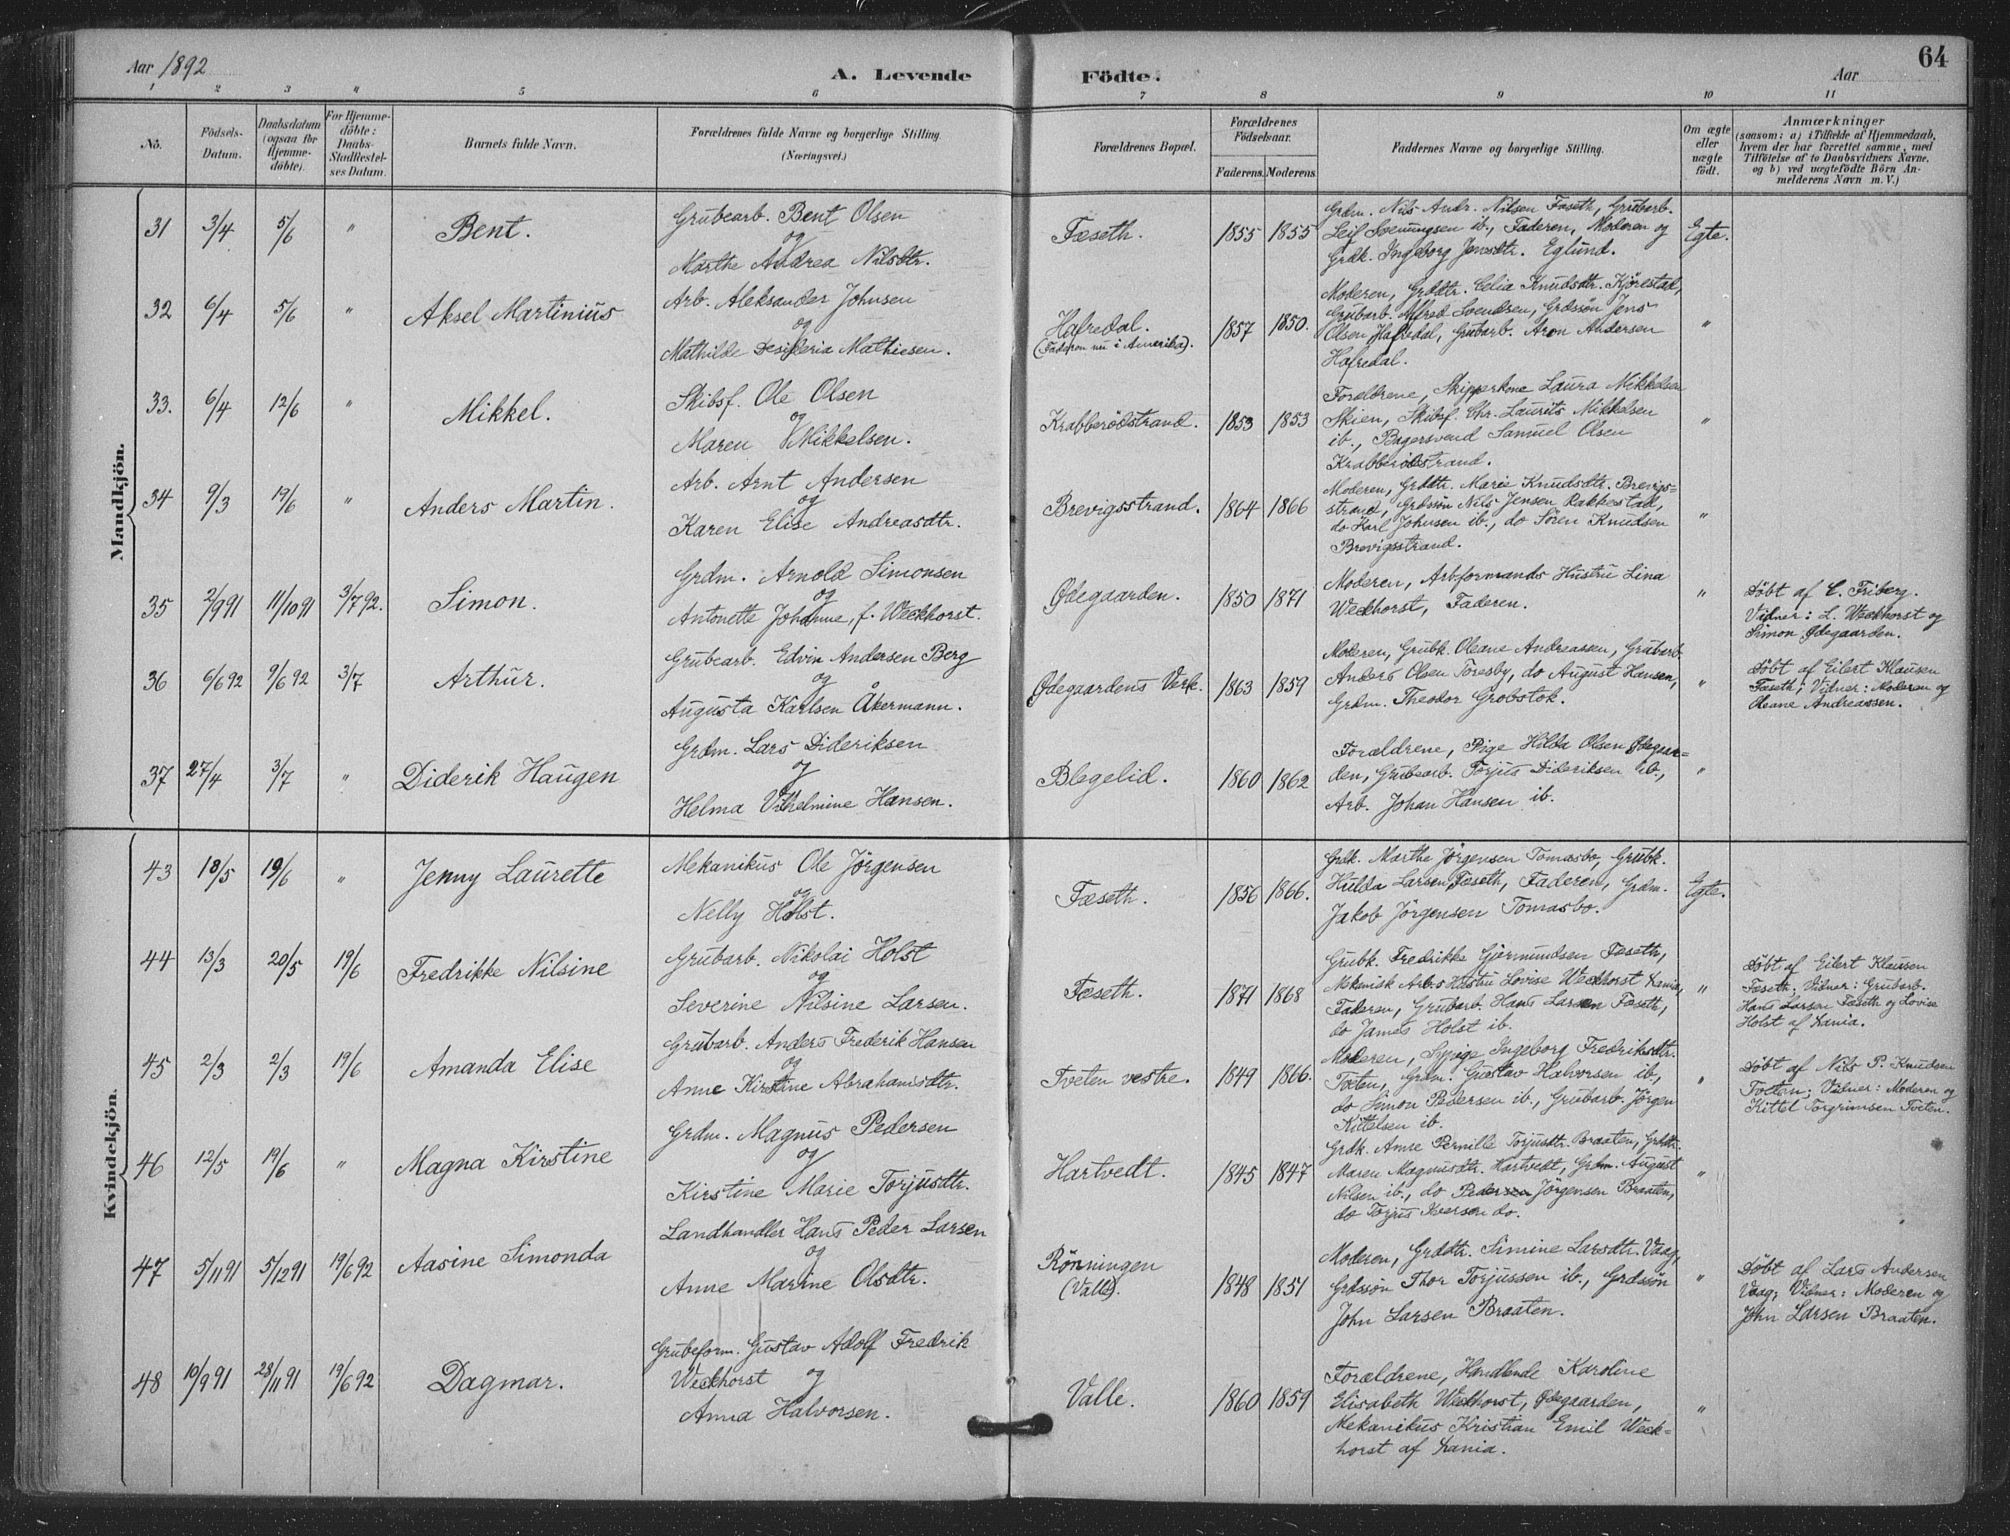 Aar 1892
A. Levende Födte.
Aar
64
1 2 3 " 5 6 7 8 9 10 11
No.
Födsels-
Datum.
Daabsdatum
(ogsaa for
Hjemme-
døbte).
For Hjemme-
döbte:
Daabs-
Stadfæstel-
ses Datum.
Barnets fulde Navn.
Forældrenes fulde Navne og borgerlige Stilling.
(Næringsvei.)
Forældrenes Bopæl.
Forældrenes
Födselsaar.
Faderens. Moderens.
Faddernes Navne og borgerlige Stilling.
Om ægte
eller
uægte
födt.
Anmærkninger
(saasom: a) i Tilfælde af Hjemmedaab,
hvem der har forrettet samme, med
Tilföielse af to Daabsvidners Navne,
og b) ved uægtefödte Börn An-
melderens Navn m. V.)
Mandkjön.
31 3/4 5/6 " Bent.
Grubearb. Bent Olsen
og
Marthe Andrea Nilsdtr.
Fæseth. 1855 1855
Grdm. Nils Andr. Nilsen Fæseth, Grubarb.
Leif Svenungsen ib., Faderen, Moderen og
Grdk. Ingeborg Jensdtr. Eglund.
Egte.
32 6/4 5/6 " Aksel Martinius
Arb. Aleksander Johnsen
og
Mathilde Desideria Mathiesen.
Hafredal.
(Faderen nu i Amerika).
1857 1850.
Moderen, Grddtr. Celia Knudsdtr. Kjørestad,
Grubarb. Alfred Svendsen, Grdssøn Jens
Olsen Hafredal, Grubarb. Aron Andersen
Hafredal.
"
33. 6/4 12/6 " Mikkel.
Skibsf. Ole Olsen
og
Maren Mikkelsen.
Krabberödstrand. 1853 1853
Forældrene, Skipperkone Laura Mikkelsen
Skien, Skibsf. Chr. Laurits Mikkelsen
ib., Bagersvend Samuel Olsen
Krabberödstrand.
"
34 9/3 19/6 " Anders Martin.
Arb. Arnt Andersen
og
Karen Elise Andreasdtr.
Brevigsstrand. 1864 1866
Moderen, Grddtr. Marie Knudsdtr. Brevigs=
strand, Grdssøn Nils Jensen Rakkestad,
do Karl Johnsen ib., do Sören Knudsen
Brevigsstrand.
"
35 2/9 91 11/10 91 3/7 92. Simon.
Grdm. Arnold Simonsen
og
Antonette Johanne, f. Weckhorst.
Ødegaarden. 1850 1871
Moderen, Arbformands Hustru Lina
Weckhorst, Faderen.
"
Døbt af E. Friberg.
Vidner: L. Weckhorst og
Simon Ødegaarden.
36 6/6 92 9/6 92 3/7 Arthur.
Grubearb. Edvin Andersen Berg
og
Augusta Karlsen Åkermann.
Ødegaardens Verk. 1863 1859
Moderen, Grubk. Oleane Andreassen, Grubarb.
Anders Olsen Toresby, do August Hansen,
Grdm. Theodor Grobstok.
"
Døbt af Eilert Klausen
Fæseth; Vidner: Moderen og
Oleane Andreassen.
37 27/4 3/7 " Diderik Haugen
Grdm. Lars Dideriksen
og
Helma Vilhelmine Hansen.
Blegelid. 1860 1862
Forældrene, Pige Hilda Olsen Ødegaar=
den, Grubearb. Torjus Dideriksen ib.,
Arb. Johan Hansen ib.
"
Kvindekjön.
43 18/5 19/6 " Jenny Laurette
Mekanikus Ole Jörgensen
og
Nelly Holst.
Fæseth. 1856 1866.
Grdk. Marthe Jörgensen Tomasbo, Grubk.
Hulda Larsen Fæseth, Faderen, Grdm.
Jakob Jörgensen Tomasbo.
Egte.
44 13/3 20/5 19/6 Fredrikke Nilsine
Grubarb. Nikolai Holst
og
Severine Nilsine Larsen.
Fæseth. 1871 1868
Grubk. Fredrikke Gjermundsen Fæseth,
Mekanisk Arb.s Hustru Lovise Weckhorst Kania,
Faderen, Grubarb. Hans Larsen Fæseth,
do James Holst ib.
"
Døbt af Eilert Klausen
Fæseth; Vidner: Grubarb.
Hans Larsen Fæseth og Lovise
Holst af Kania.
45 2/3 2/3 19/6 Amanda Elise
Grubarb. Anders Frederik Hansen
og
Anne Kirstine Abrahamsdtr.
Tveten vestre. 1849 1866.
Moderen, Sypige Ingeborg Fredriksdtr.
Toeten, Grdm. Gustav Halvorsen ib.,
do Simon Pedersen ib., Grubarb. Jörgen
Kittelsen ib.
"
Døbt af Nils P. Knudsen
Tveten; Vidner: Moderen og
Kittel Torgrimsen Tveten.
46 12/5 19/6 " Magna Kirstine
Grdm. Magnus Pedersen
og
Kirstine Marie Torjusdtr.
Hartvedt. 1845 1847
Grdk. Anne Pernille Torjusdtr. Braaten, Grddtr.
Maren Magnusdtr. Hartvedt, Grdm. August
Nilsen ib., do Peder Jörgensen Braaten,
do Torjus Iversen do.
"
47 5/11 91 5/12 91 19/6 92 Aasine Simonda
Landhandler Hans Peder Larsen
og
Anne Marine Olsdtr.
Rönningen
(Valle).
1848 1851
Moderen, Grddtr. Simine Larsdtr. Vaag,
Grdssøn Thor Torjussen ib., Grdssøn
John Larsen Braaten.
"
Døbt af Lars Andersen
Vaag; Vidner: Moderen og
John Larsen Braaten.
48 10/9 91 28/11 91 19/6 92 Dagmar.
Grubeform. Gustav Adolf Fredrik
Weckhorst og
Anna Halvorsen.
Valle. 1860 1859
Forældrene, Handlende Karoline
Elisabeth Weckhorst, Ødegaarden,
Mekanikus Kristian Emil Weck=
horst af Kania.
"